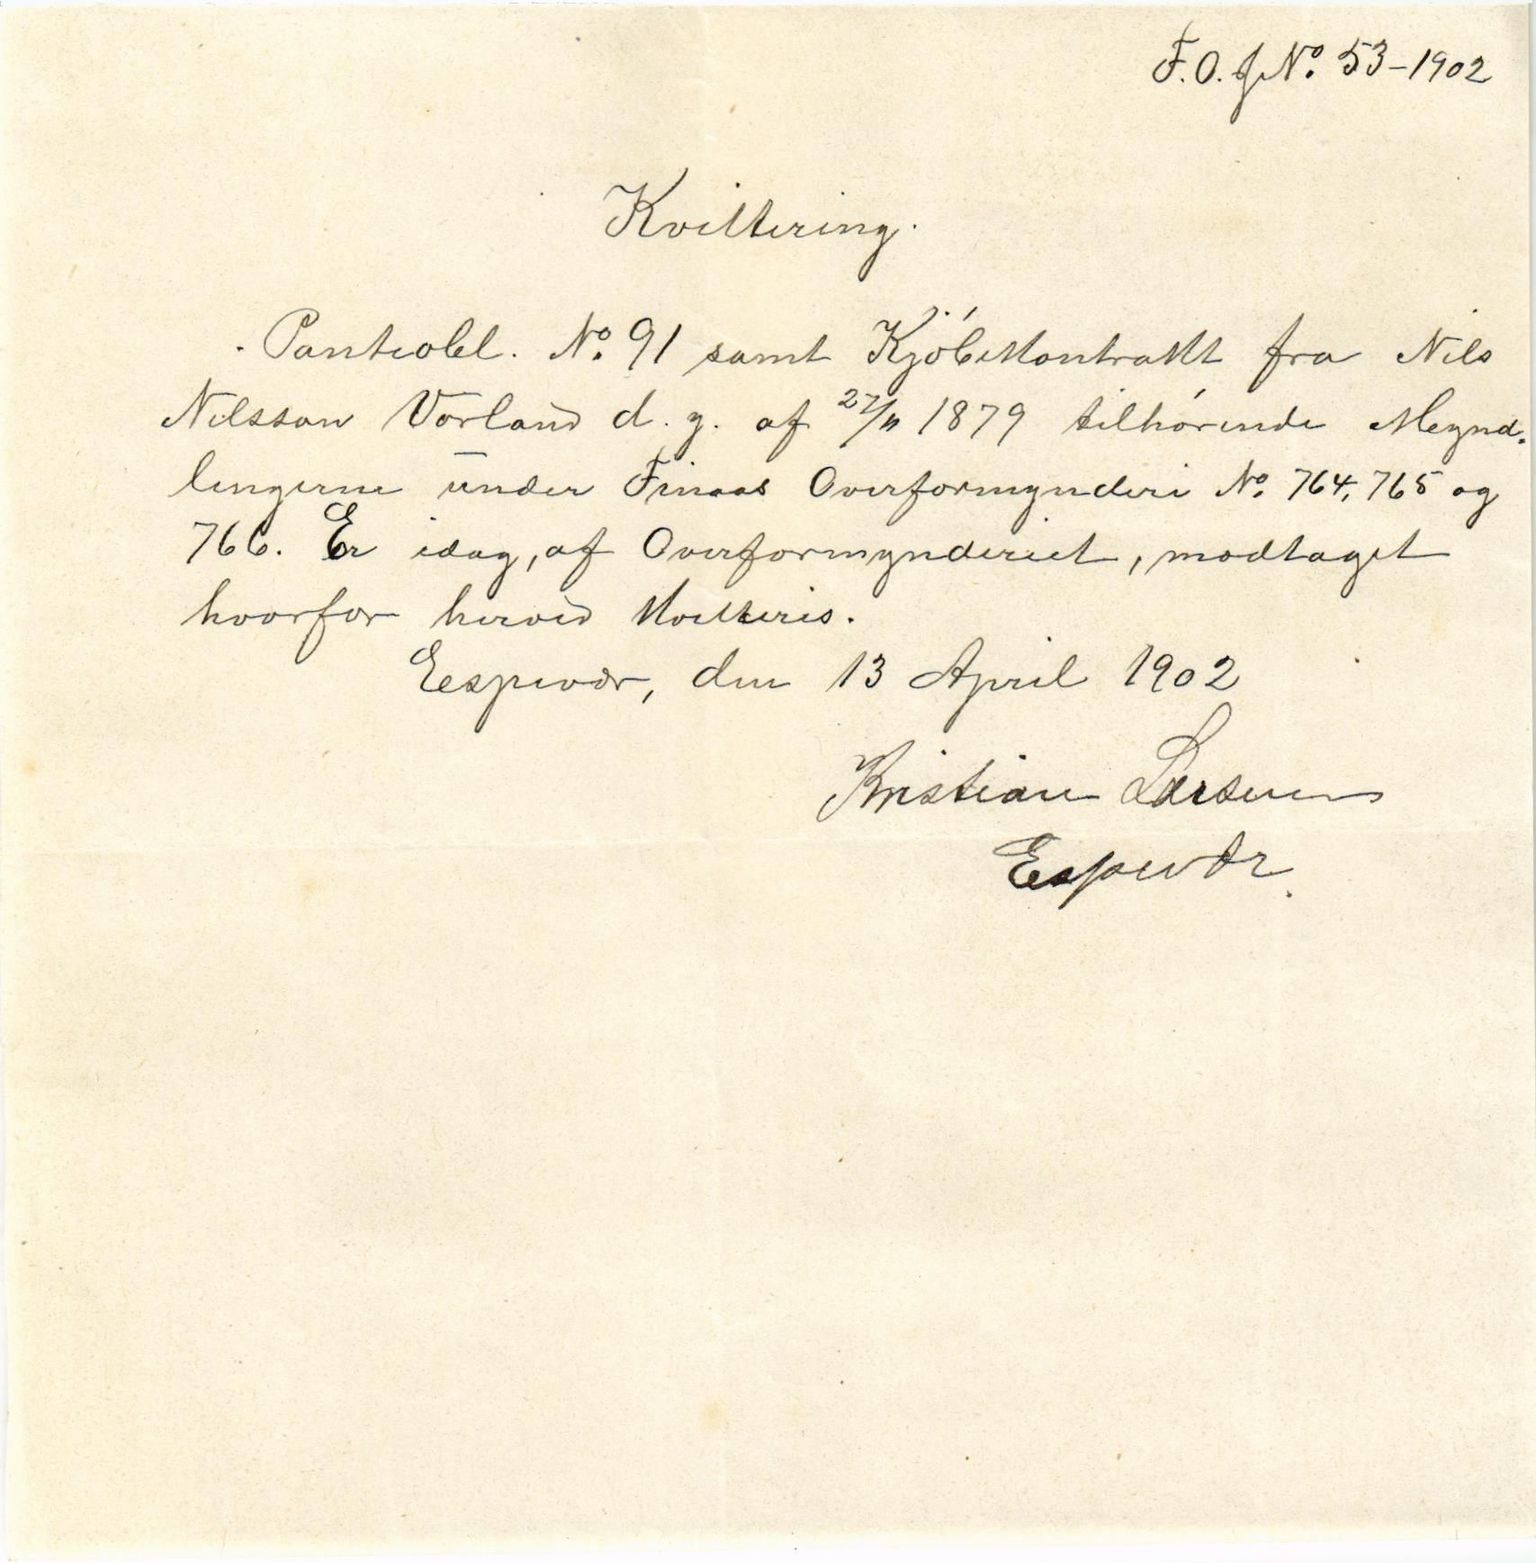 F.O. J No. 53-1902
Kvittering.
Panteobl. No. 91 samt Kjöbekontrakt fra Nils
Nilssøn Vorland d. y. af 27/11 1879 tilhørende Meynd-
lingerne under Finaas Overformynderi No. 764, 765 og
766. Er idag, af Overformynderiet, modtaget
hvorfor herved kvitteres.
Espevær, den 13 April 1902
Kristian Larsen
Espevær.